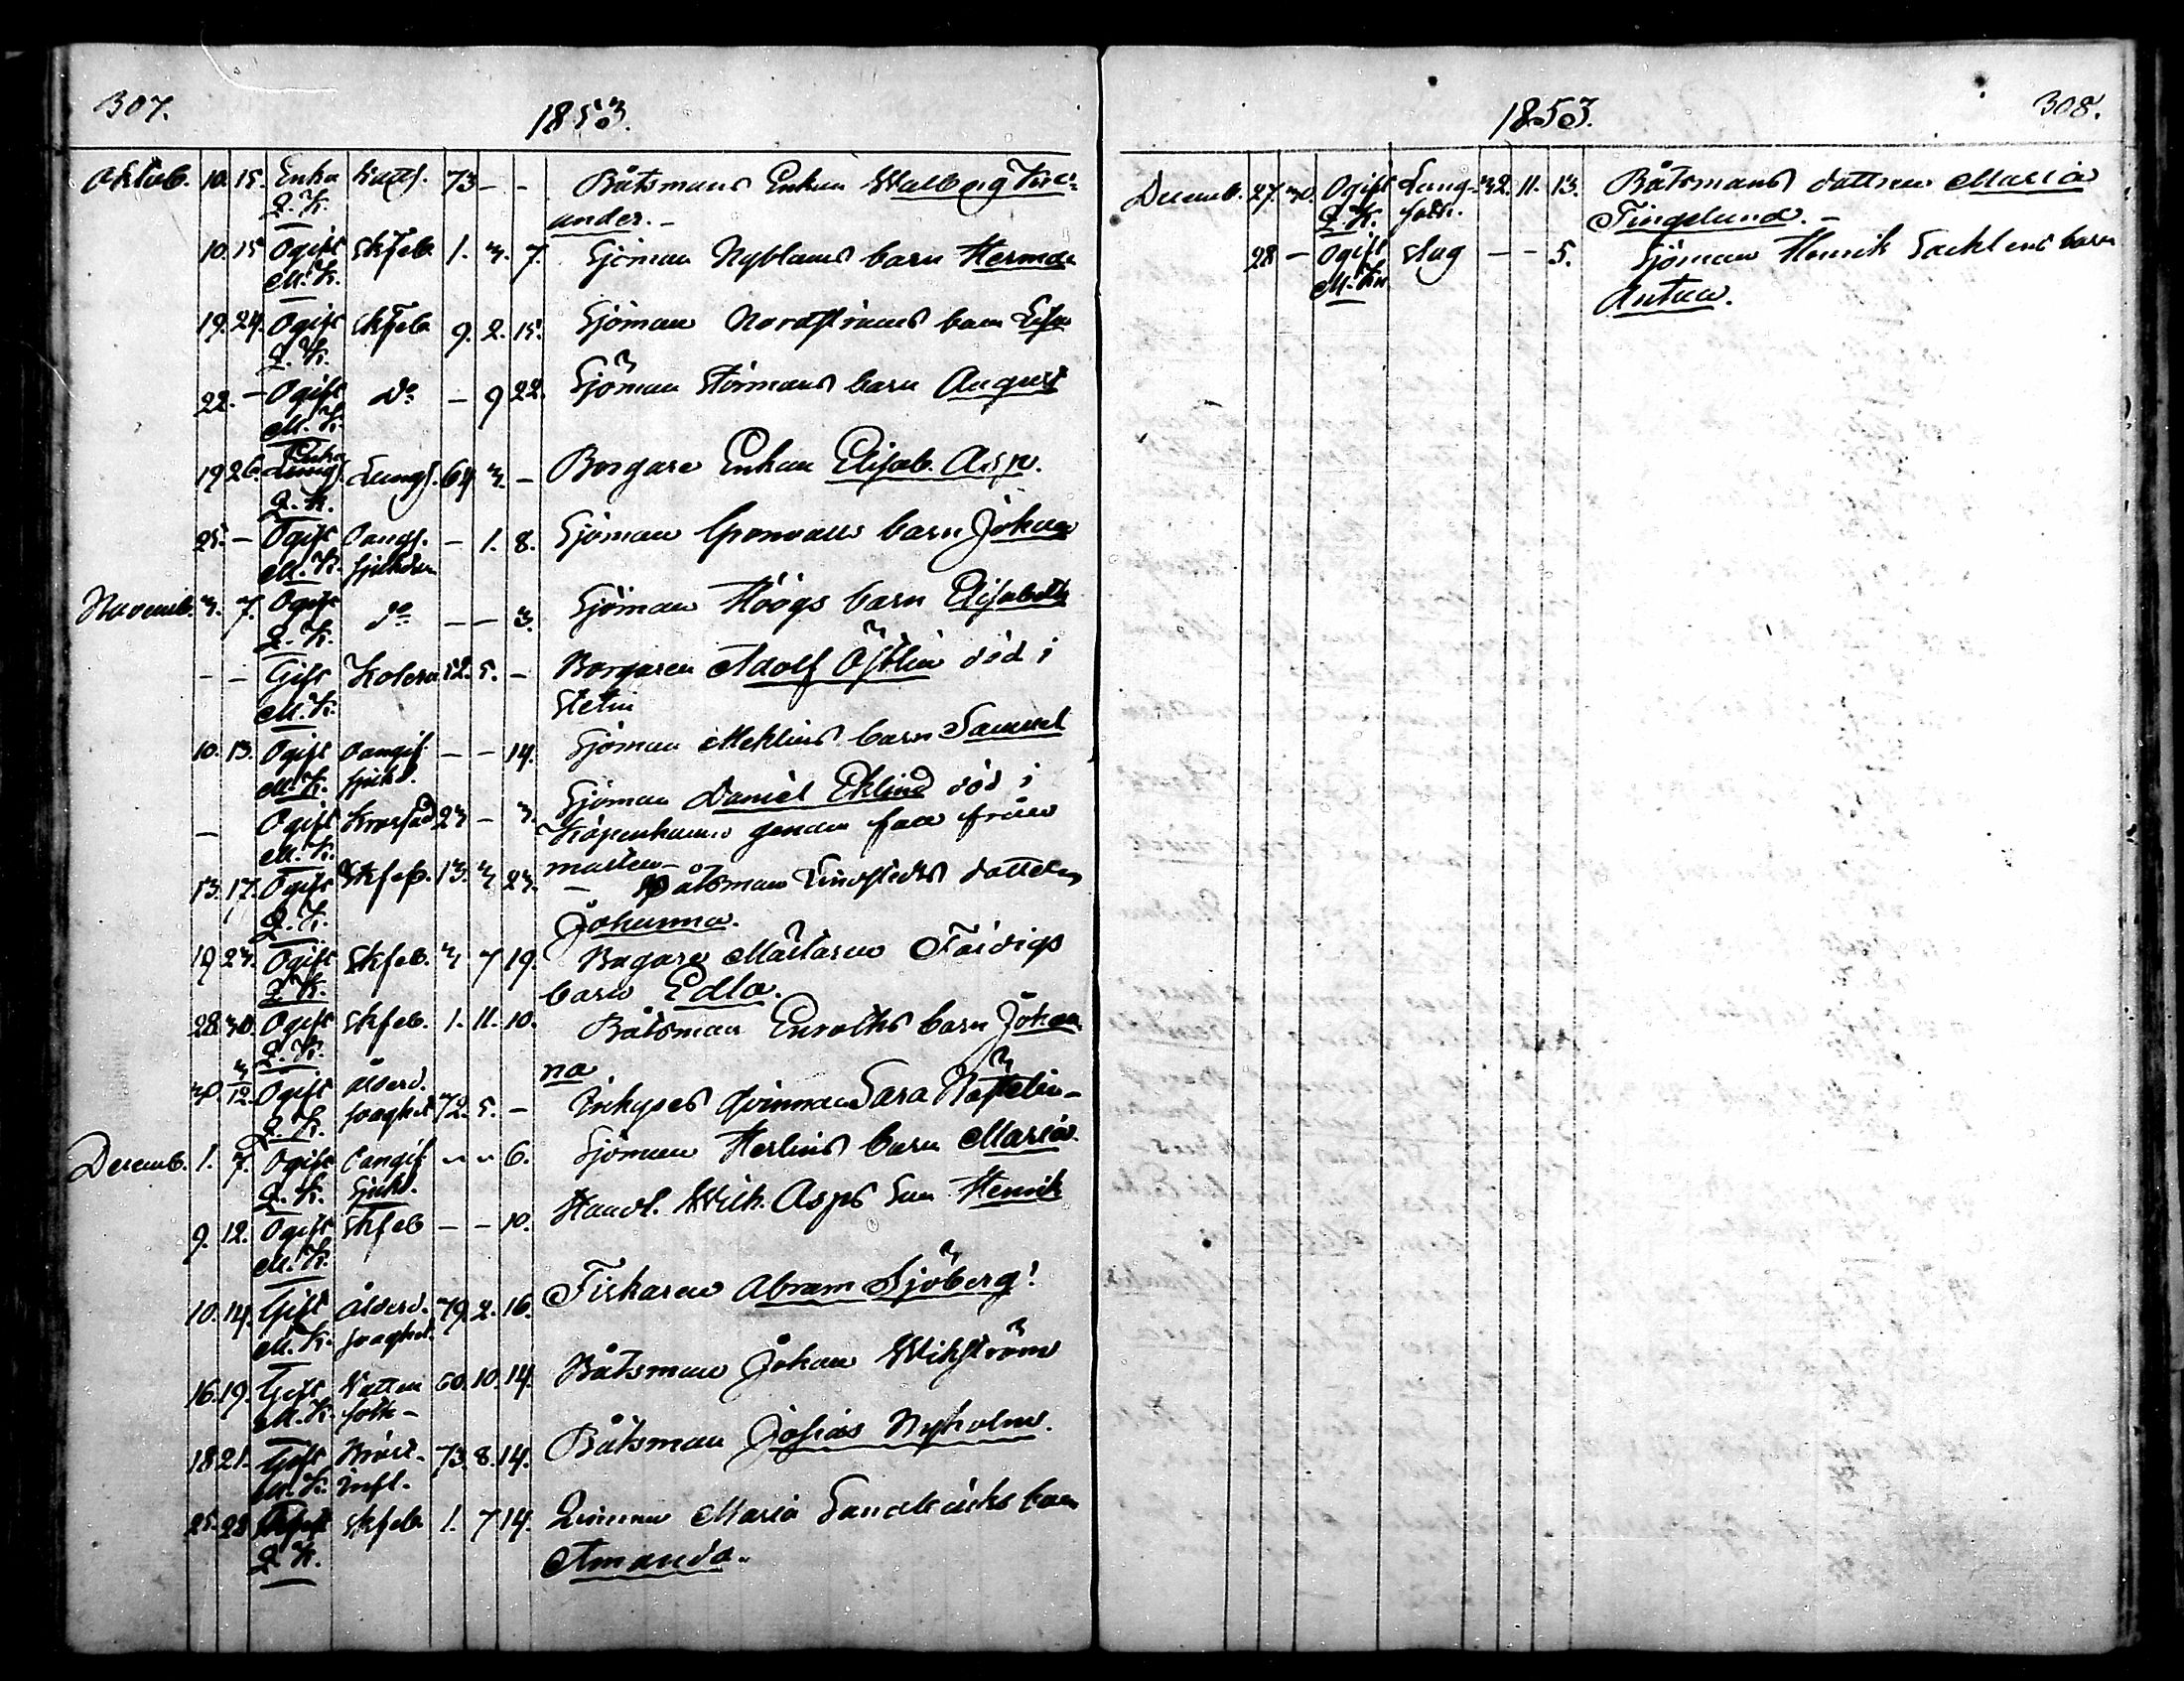 307.
1853.
Oktob. 10. 15. Enka 73 - - Båtsmans Enkan Walborg
Q. K. ander. -
10. 15 Ogift Skfeb. 1. 3. 7. Sjöman Nybloms barn Herman
M. K.
19. 24. Ogift Skfeb 9. 2. 15. Sjöman Nordströms barn
Q. K.
22. - Ogift do - 9 22. Sjöman Störmans barn August
M. K.
Enka
19 26. Lungs. 64 3. - Borgare Enkan Elisab. Asp.
Q. K.
25. - Ogift Oangf. - 1. 8. Sjöman Gronvalls barn Johan
M. K. sjukdm
Novemb. 3. 7. Ogift do - - 3. Sjöman Höögs barn Elisabeth
Q. K.
- - Gift Kolera 52. 5. - Borgaren Adolf Östlin död i
M. K. Stetin
10. 13. Ogift Oangif. - - 14. Sjöman Mehlins barn Samuel
M. K. sjukd.
- Ogift 23 - 3. Sjöman Daniel Eklind död i
M. K. Köpenhamn genom fall från
masten -
13. 17. Ogift Skfeb. 13. 3 23. - Båtsman Lindstedts dotter
Q. K. Johanna.
19 23. Ogift Skfeb. 3 7 19. Bagare Mästaren Färdigs
Q. K. barn Edla.
28. 30. Ogift Skfeb. 1. 11. 10. Båtsman Enroths barn Johan
Q. K. na
30. 3/12. Ogift ålderd. 72. 5. - Inhyses Qvinnan Sara
Q. K. svaghet
Decemb. 1. 7. Ogift Oangif - - 6. Sjöman Herlins barn Maria
Q. K. Sjukd.
9. 12. Ogift Skfeb - - 10. Handl. Wilh. Asps Son Henrik
M. K.
10. 14. Gift Ålderd. 79. 2. 16. Fiskaren Abram Sjöberg!
M. K. svaghet
16. 19. Gift Vatten 60. 10. 14. Båtsman Johan Wikström
M. K. sott -
18 21. Gift Bröst- 73. 8. 14. Båtsman Josias Nyholm.
M. K. infl.
25. 28 Skfeb 1. 7 14. Qvinnan Maria Sandbäcks barn
Q. K. Amanda.
1853.
308.
Decemb. 27. 30. Ogift Lung- 32. 11. 13. Båtsmans dottren Maria
Q. K. sott. Tingelund. -
28 - Ogift slag - - 5. Sjöman Henrik barn
M. Kn Anton.